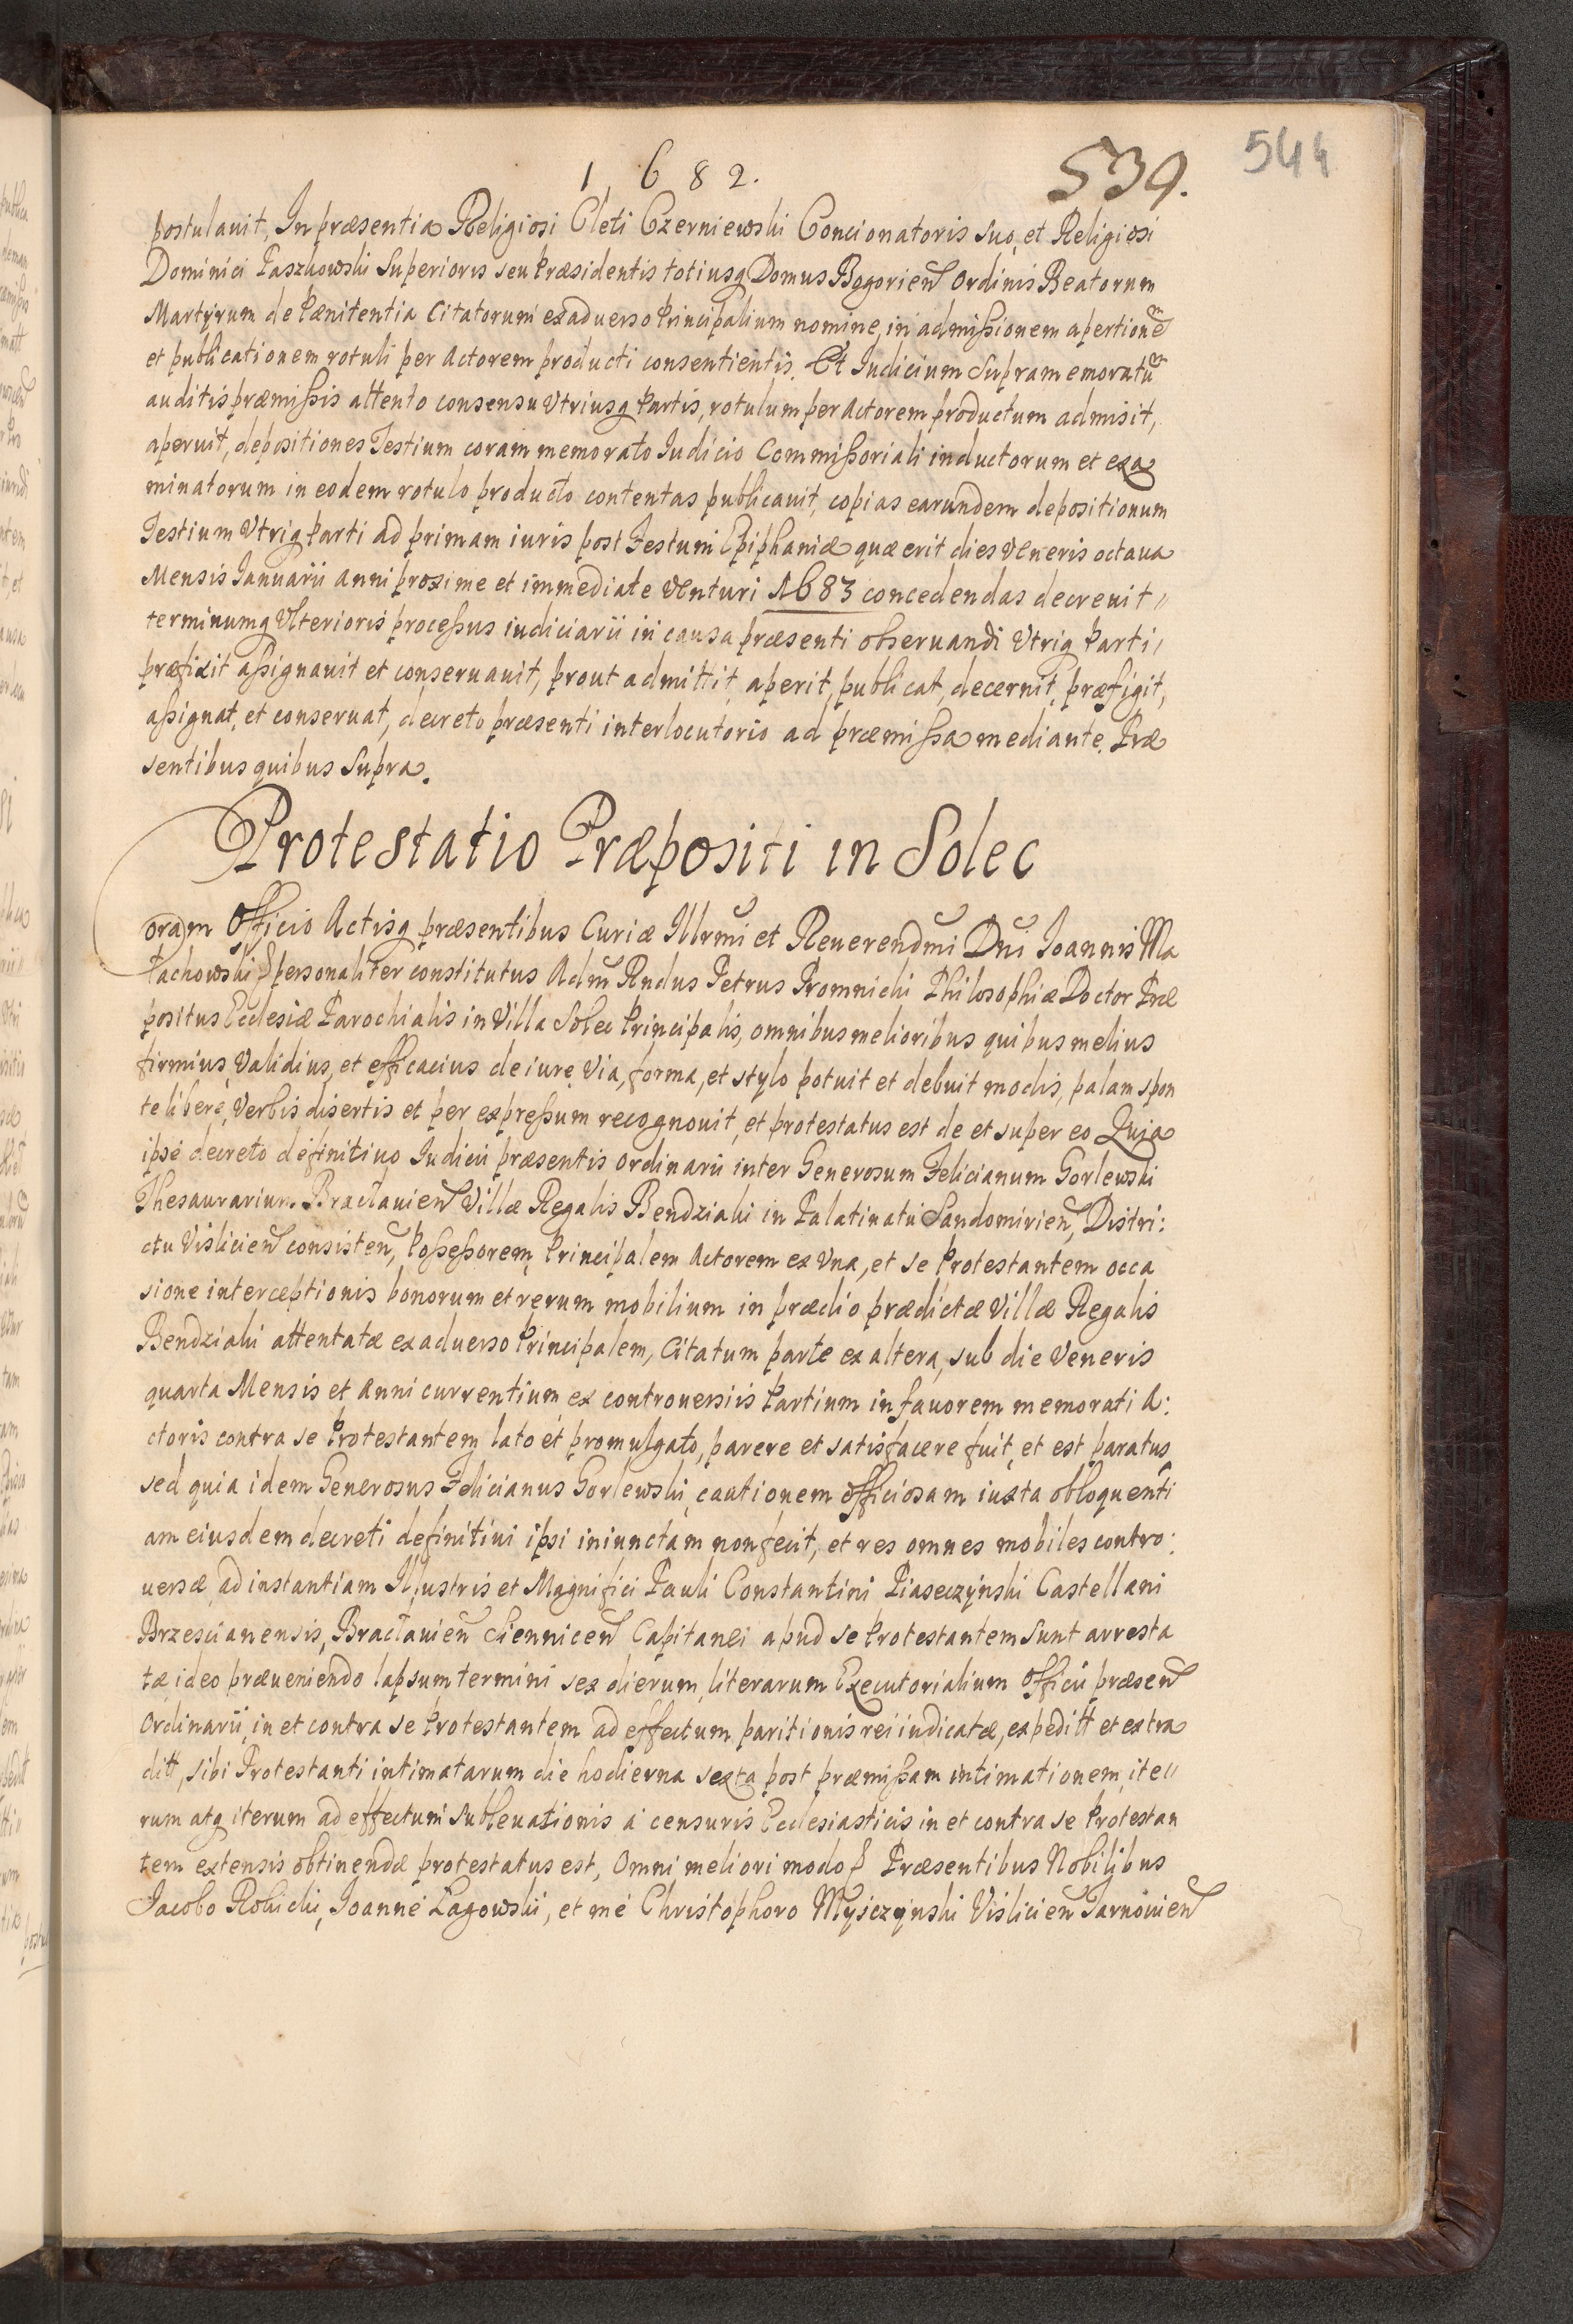 1682.
539.
544
postulauit, In præsentia Religiosi Cleti Czerniewski Concionatoris suo, et Religiosi
Dominici Paszkowski Superioris seu Præsidentis totiusq Domus Bogorien Ordinis Beatorum
Martyrum de Pænitentia Citatorum exaduerso Principalium nomine, in admißionem apertionem
et publicationem rotuli per Actorem producti consentientis. Et Iudicium Supramemoratum
auditis præmißis attento consensu Vtriusq Partis, rotulum per Actorem productum admisit,
aperuit, depositiones Testium coram memorato Iudicio Commißoriali inductorum et exa
minatorum in eodem rotulo producto contentas publicauit, copias earundem depositionum
Testium Vtriq Parti ad primam iuris post Festum Epiphaniæ quæ erit dies Veneris octaua
Mensis Ianuarii Anni proxime et immediate Venturi 1683 concedendas decreuit //
terminumq Vlterioris proceßus iudiciarii in causa præsenti obseruandi Vtriq Parti /
præfixit aßignauit et conseruauit, prout admittit, aperit, publicat, decernit, præfigit,
aßignat, et conseruat, decreto præsenti interlocutorio ad præmißa mediante. Præ
sentibus quibus Supra.
Protestatio Præpositi in Solec
Coram Officio Actisq præsentibus Curiæ Illrmi et Reuerendmi Dni Ioannis Ma
łachowski & personaliter constitutus Adm Rndus Petrus Promnicki Philosophiæ Doctor Præ
positus Ecclesiæ Parochialis in Villa Solec Principalis, omnibus melioribus quibus melius
firmius, Validius, et efficacius de iure, Via, forma, et stylo potuit et debuit modis, palam spon
te libere, Verbis disertis et per expreßum recognouit, et protestatus est de et super eo Quia
ipse decreto definitiuo Iudicii præsentis Ordinarii inter Generosum Felicianum Gorlewski
Thesaurarium Braclauien Villæ Regalis Bendziaki in Palatinatu Sandomirien, Distri:
ctu Vislicien consisten, Poßeßorem, Principalem Actorem ex Vna, et se Protestantem occa
sione interceptionis bonorum et rerum mobilium in prædio prædictæ Villæ Regalis
Bendziaki attentatæ exaduerso Principalem, Citatum parte ex altera, sub die Veneris
quarta Mensis et Anni currentium ex controuersiis Partium in fauorem memorati A:
ctoris contra se Protestantem lato et promulgato, parere et satisfacere fuit, et est paratus,
sed quia idem Generosus Felicianus Gorlewski, cautionem officiosam iuxta obloquenti
am eiusdem decreti definitiui ipsi iniunctam non fecit, et res omnes mobiles contro:
uersæ, ad instantiam Illustris et Magnifici Pauli Constantini Piaseczynski Castellani
Brzescianensis, Braclauien Siennicen Capitanei apud se Protestantem Sunt arresta
tæ, ideo præueniendo lapsum termini sex dierum, literarum Executorialium Officii præsen
Ordinarii, in et contra se Protestantem ad effectum paritionis rei iudicatæ, expeditt et extra
ditt, sibi Protestanti intimatarum die hodierna sexta post præmißam intimationem, ite//
rum atq iterum ad effectum Subleuationis a censuris Ecclesiasticis in et contra se Protestan
tem extensis obtinendæ protestatus est, Omni meliori modo & Præsentibus Nobilibus
Iacobo Robicki, Ioanne Łagowski, et me Christophoro Myiczynski Vislicien Tarnouien